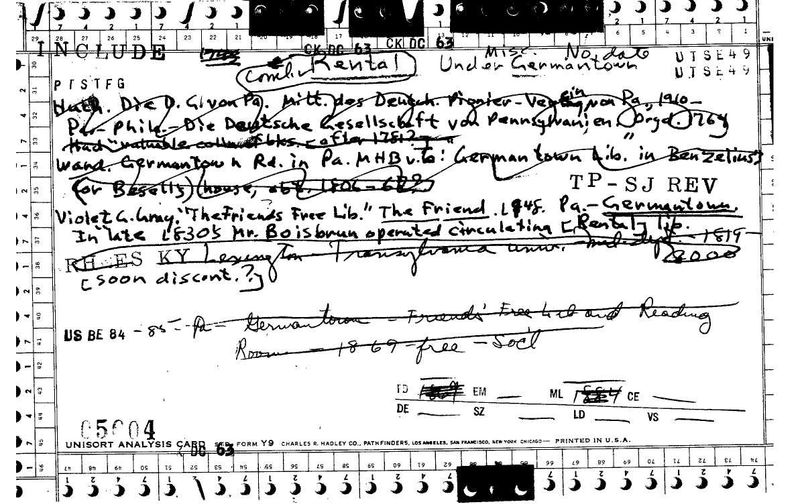 INCLUDE CK DC 63 CK DC 63
Misc. No date UTSE49
Rental Under Germantown UTSE49
PTSTFG
Huth. Die D. G. von Pa. Mitt. des Deutsch. Pionier-Vereins von Pa., 1910-
Pa.-Phila.-Die Deutsche Gesellschaft von Pennsylvanien. Orgd. 1764
Had "valuable coll. of bks. after 1781?
Wand. Germantown Rd. in Pa. MHB v. 6: "Germantown Lib." in Benzelius
(or Besell's) house,
TP-SJ REV
Violet G. Gray. "The Friends Free Lib." The Friend. 1948. Pa.-Germantown.
In late 1830s Mr. Boisbrun operated circulating [Rental] lib.
RH ES KY Lexington - Transylvania Univ. - 1819-
2000
[soon discont.?]
US BE 84-85- Pa- Germantown - Friends' Free Lib and Reading
Room - 1869-free-Soc'l
TD EM ML CE
DE SZ LD VS
05604
UNISORT ANALYSIS CARD FORM Y9 CHARLES R. HADLEY CO., PATHFINDERS, LOS ANGELES, SAN FRANCISCO, NEW YORK CHICAGO— PRINTED IN U.S.A.
DC 63